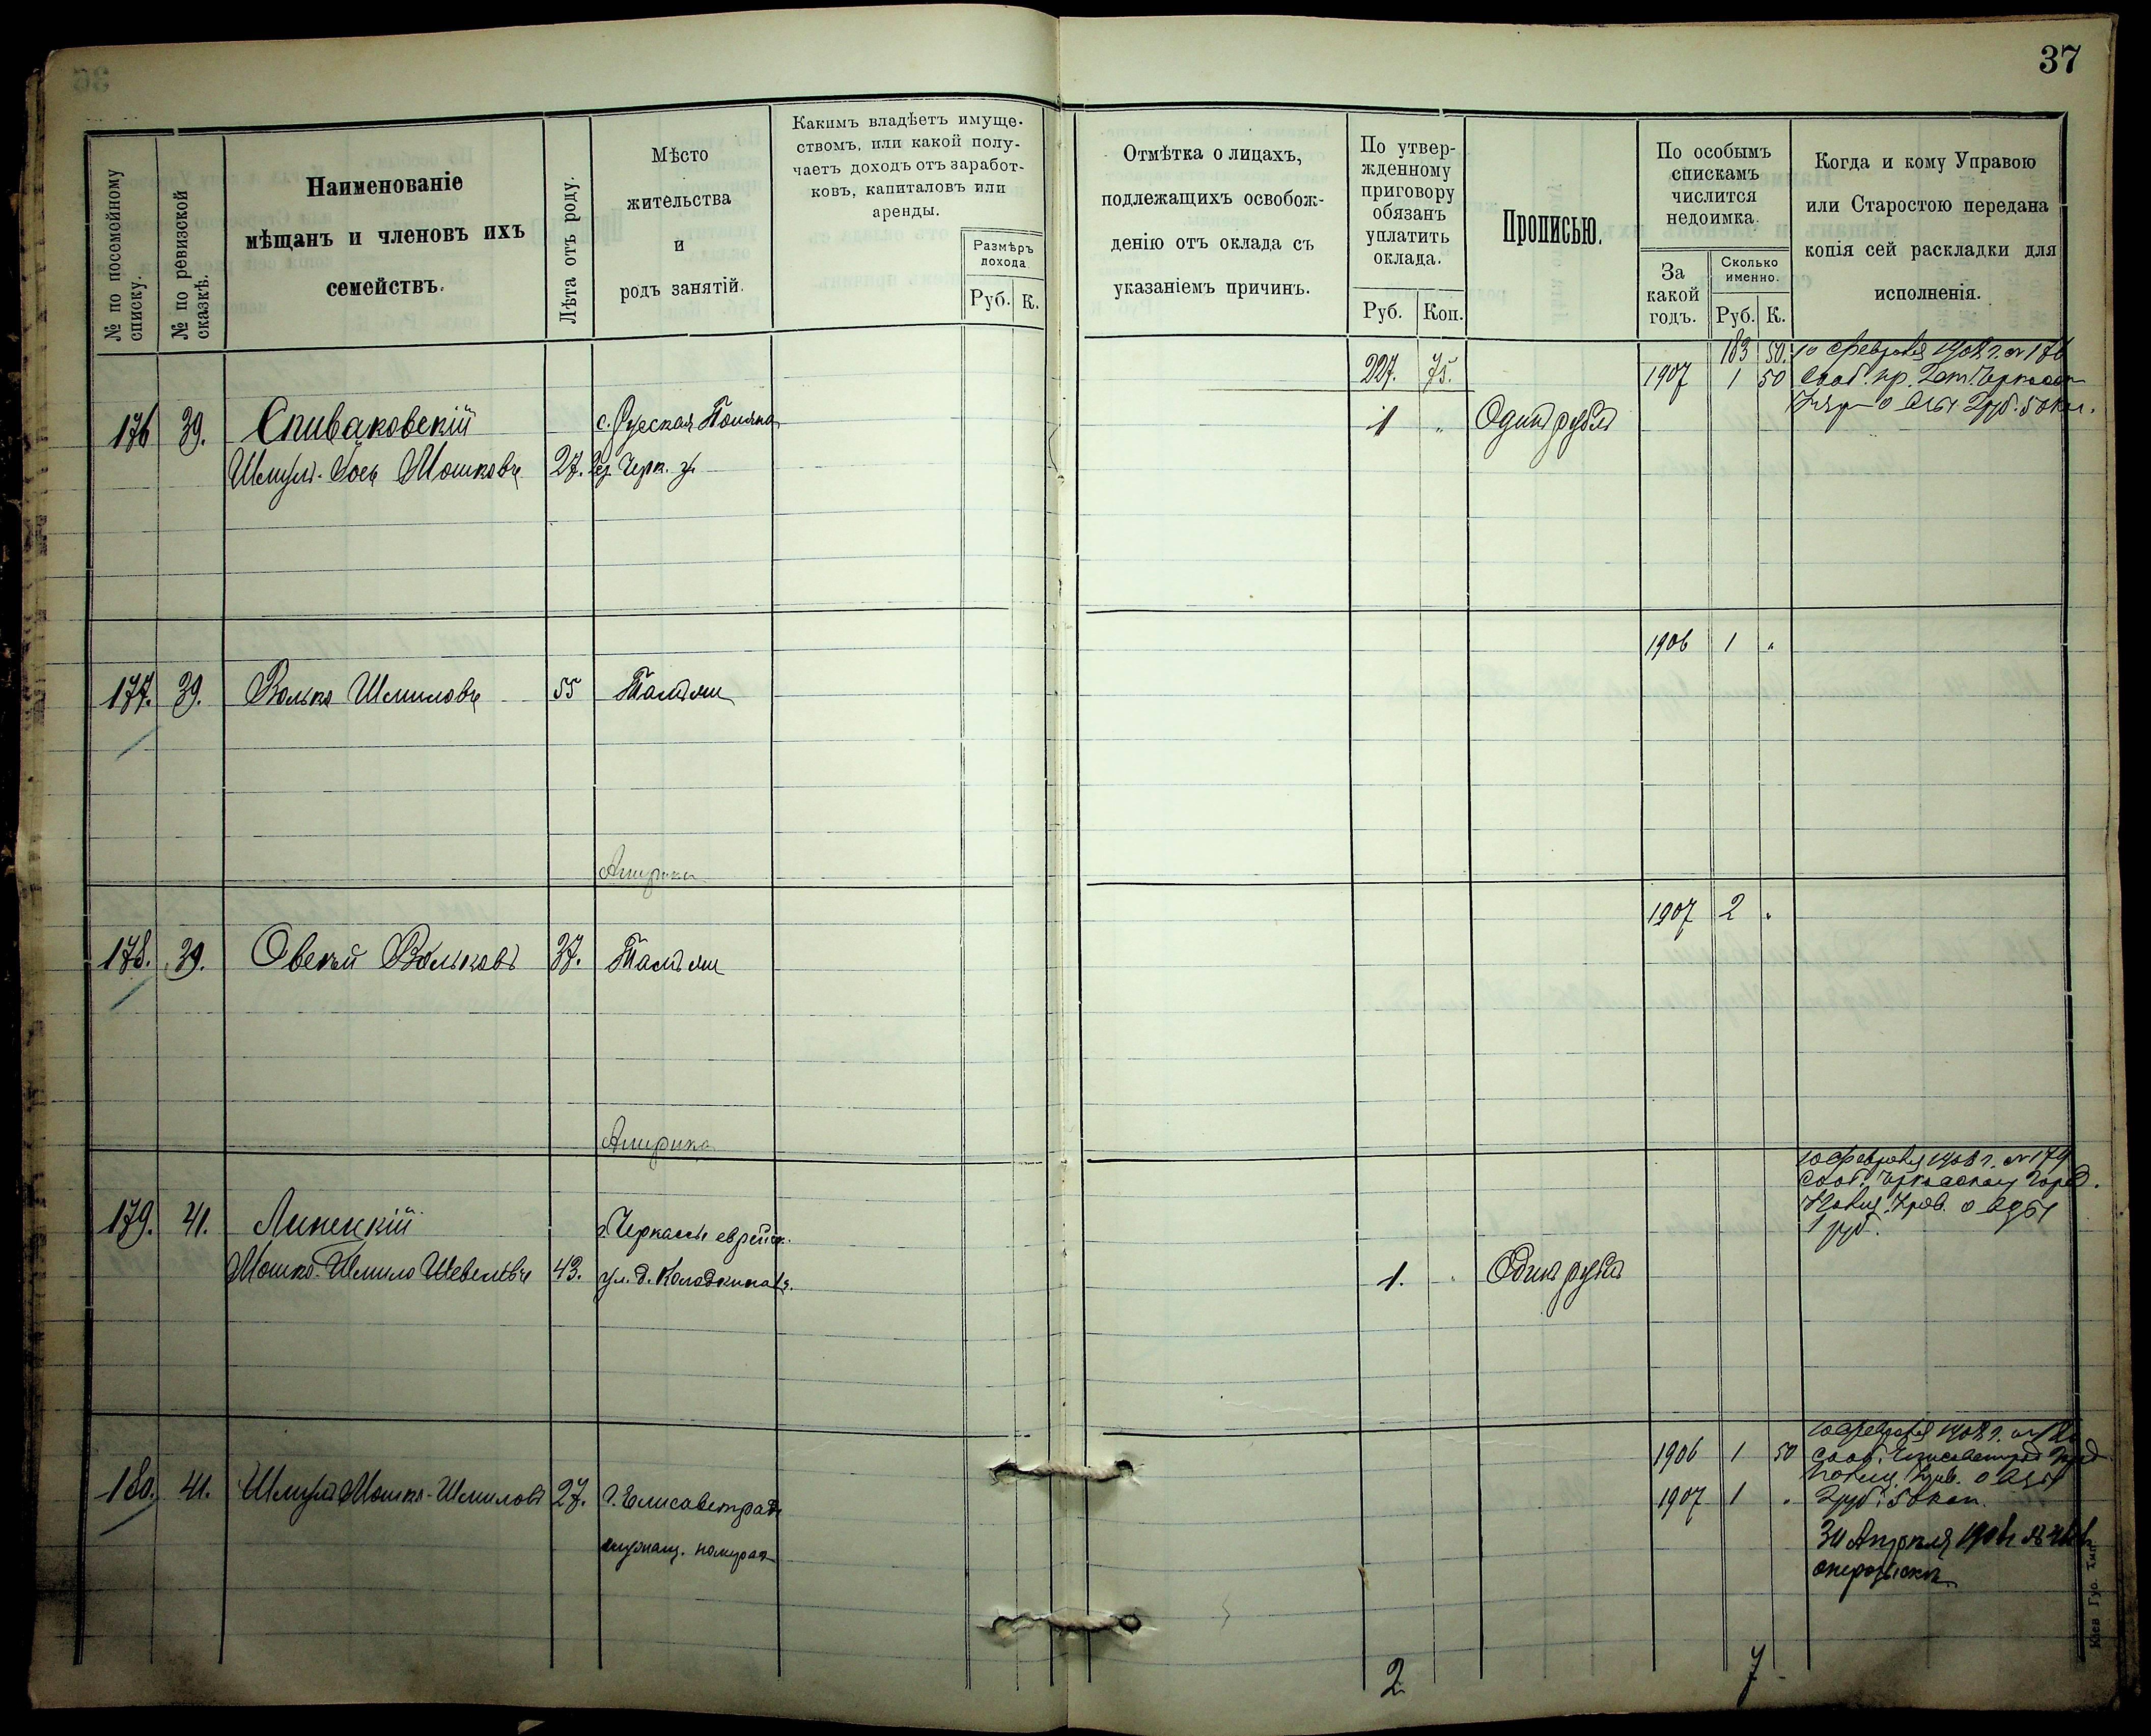 37
№ по посемейному списку.
№ по ревизской сказкѣ.
Наименованіе
мѣщанъ и членовъ ихъ
семействъ.
Лѣта отъ роду.
Мѣсто
жительства
и
родъ занятій.
Какимъ владѣетъ имуще-
ствомъ, или какой полу-
чаетъ доходъ отъ заработ-
ковъ, капиталовъ или
аренды.
Размѣръ
дохода
Руб. К.
Отмѣтка о лицахъ,
подлежащихъ освобож-
денію отъ оклада съ
указаніемъ причинъ.
По утвер-
жденному
приговору
обязанъ
уплатить
оклада.
Руб. Коп.
Прописью.
По особымъ
спискамъ
числится
недоимка.
За
какой
годъ.
Сколько
именно.
Руб. К.
Когда и кому Управою
или Старостою передана
копія сей раскладки для
исполненія.
227. 75. 183 50.
1907 1 50
10 Февраля 1908 г. № 176
2 руб. 50 коп.
176 39. Спиваковскій с. Русская Поляна 1 " Одинъ рубль
Шмуль Мошковъ 27. Черк. у.
1906 1 "
177. 39. Волько Шмиловъ 55 Тамъ же
Америка
1907 2 "
178. 39. Овсей Вольковъ 37. Тамъ же
Америка
10 Февраля 1908 г. № 179
Сооб. Черкасскому Город.
Полиц. Упр. о взыс
1 руб.
179. 41. Липецкій г. Черкассы еврейск.
Мошко-Шмило Шевелевъ 43. ул. д. Колодкина 1. " Одинъ рубль
10 Февраля 1908 г. № 180
1906 1 50 сооб. Елисаветград Город
Полиц. Упр. о взыс
180. 41. Шмуль Мошко-Шмиловъ 27. г. Елисаветградъ 1907 1 " 2 руб. 50 коп.
30 Апрѣля 1908 г.
2 7
Кіев Губ. Тип.